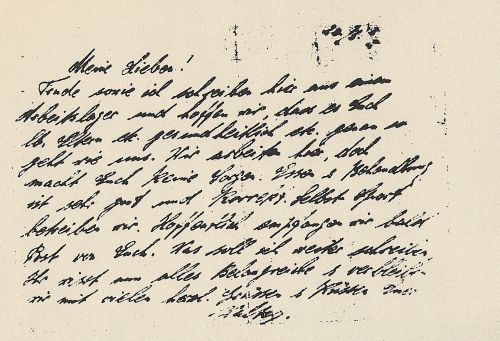 Meine Lieben!
Trude sowie ich schreiben hier aus einem
Arbeitslager und hoffen wir, dass es Euch
lb. Eltern etc. gesundheitlich etc. genau so
geht wie uns. Wir arbeiten hier, doch
macht Euch keine Sorgen. Essen & Behandlung
ist sehr gut und korrekt. Selbst Sport
betreiben wir. Hoffentlich empfangen wir bald
Post von Euch. Was soll ich weiter schreiben,
Ihr wisst nun alles
wir mit vielen herzl. Grüssen & Küssen Euer
Walter.